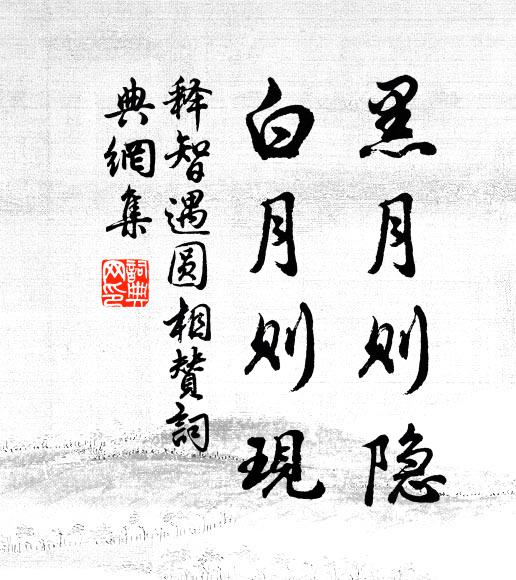 黑月则隐
白月则现
释智遇圆相赞词
典網集
詞典
网印